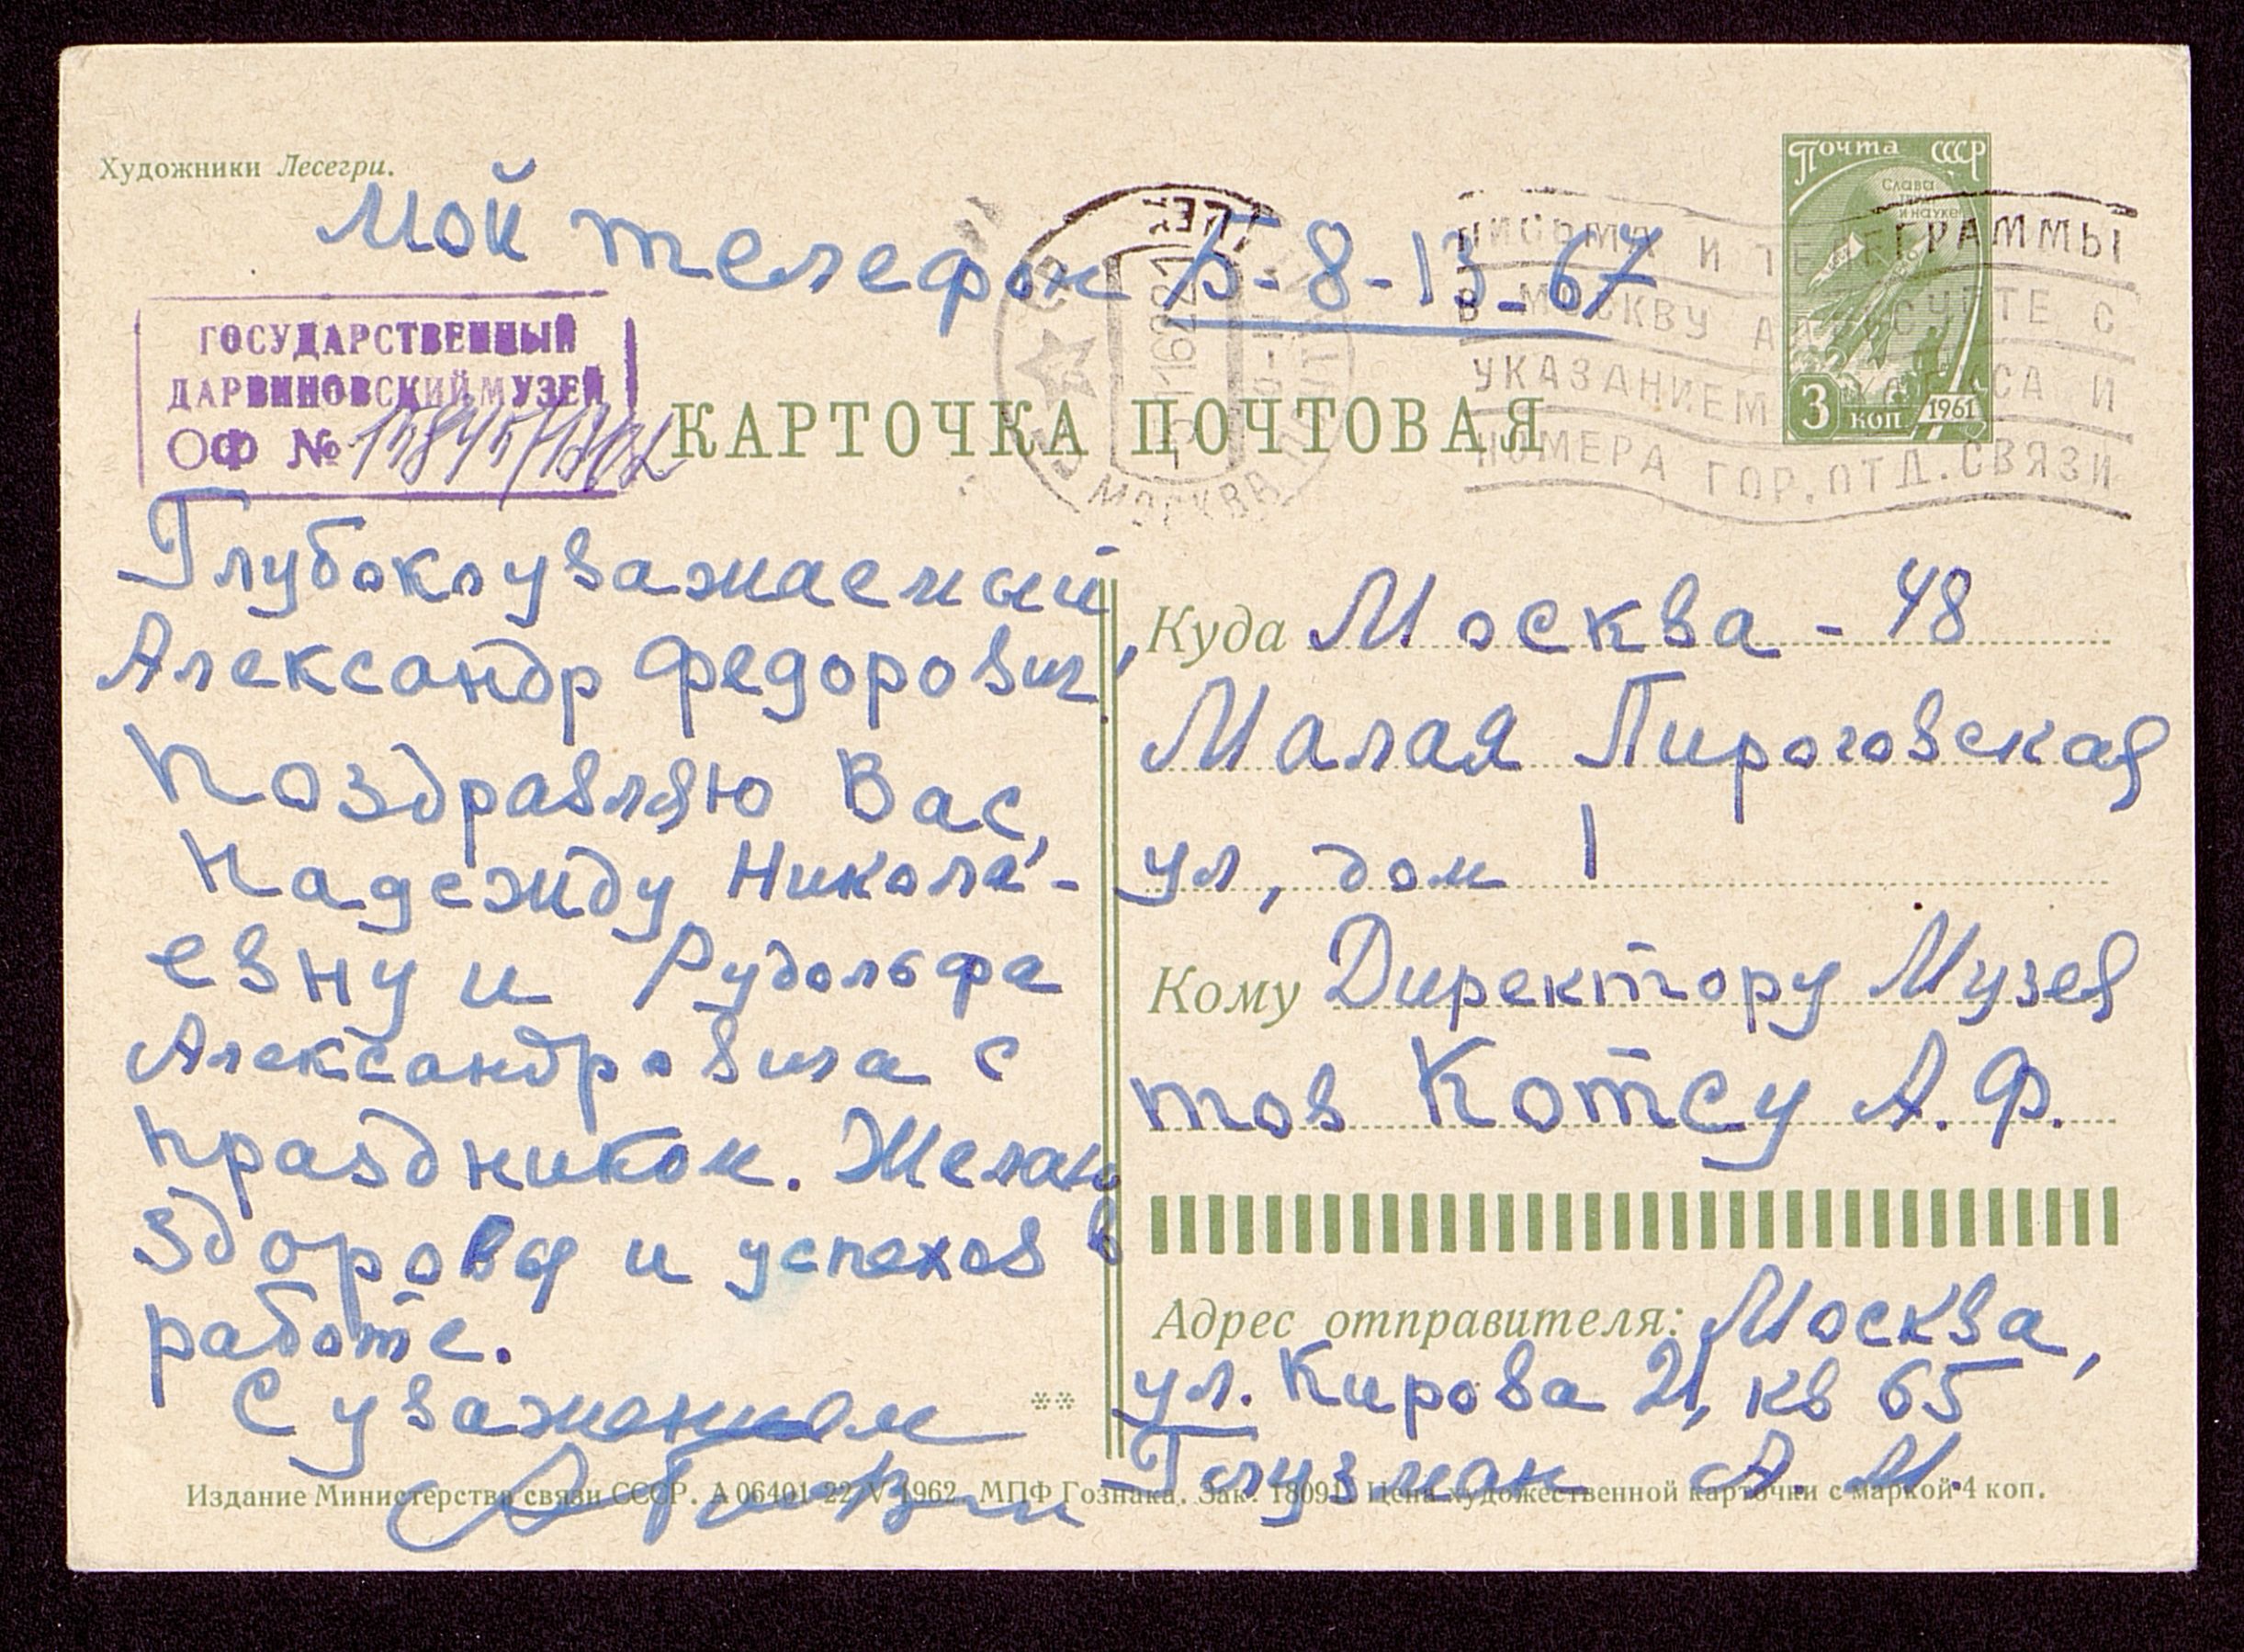 Художники Лесегри.
Мой телефон Б-8-13-67
Почта СССР
Слава
и науке
3 коп. 1961
ПИСЬМА И ТЕЛЕГРАММЫ
В МОСКВУ АДРЕСУЙТЕ С
УКАЗАНИЕМ АДРЕСА И
НОМЕРА ГОР. ОТД. СВЯЗИ
МОСКВА
ГОСУДАРСТВЕННЫЙ
ДАРВИНОВСКИЙ МУЗЕЙ
ОФ №
КАРТОЧКА ПОЧТОВАЯ
Глубокоуважаемый
Александр Федорович,
Поздравляю Вас,
Надежду Никола-
евну и Рудольфа
Александровича с
праздником. Желаю
здоровя и успехов в
работе.
С уважением
Куда Москва - 48
Малая Пироговская
ул, дом 1
Кому Директору Музея
тов Котсу А. Ф.
Адрес отправителя: Москва,
ул. Кирова 21, кв 65
Глузман А. М.
Издание Министерства связи СССР. А 06401 22/V 1962. МПФ Гознака. Зак. 18091. Цена художественной карточки с маркой 4 коп.